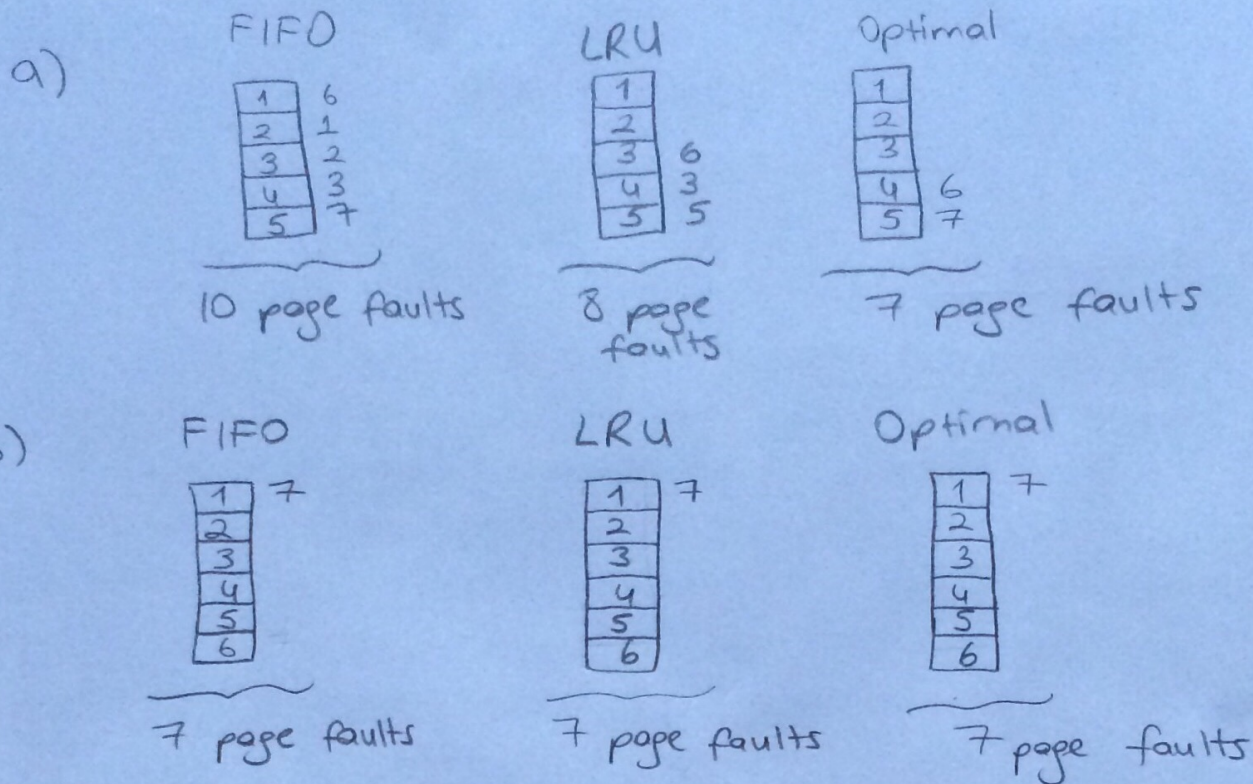 a)
FIFO
1 6
2 1
3 2
4 3
5 7
10 page faults
LRU
1
2
3 6
4 3
5 5
8 page
faults
Optimal
1
2
3
4 6
5 7
7 page faults
)
FIFO
1 7
2
3
4
5
6
7 page faults
LRU
1 7
2
3
4
5
6
7 page faults
Optimal
1 7
2
3
4
5
6
7 page faults